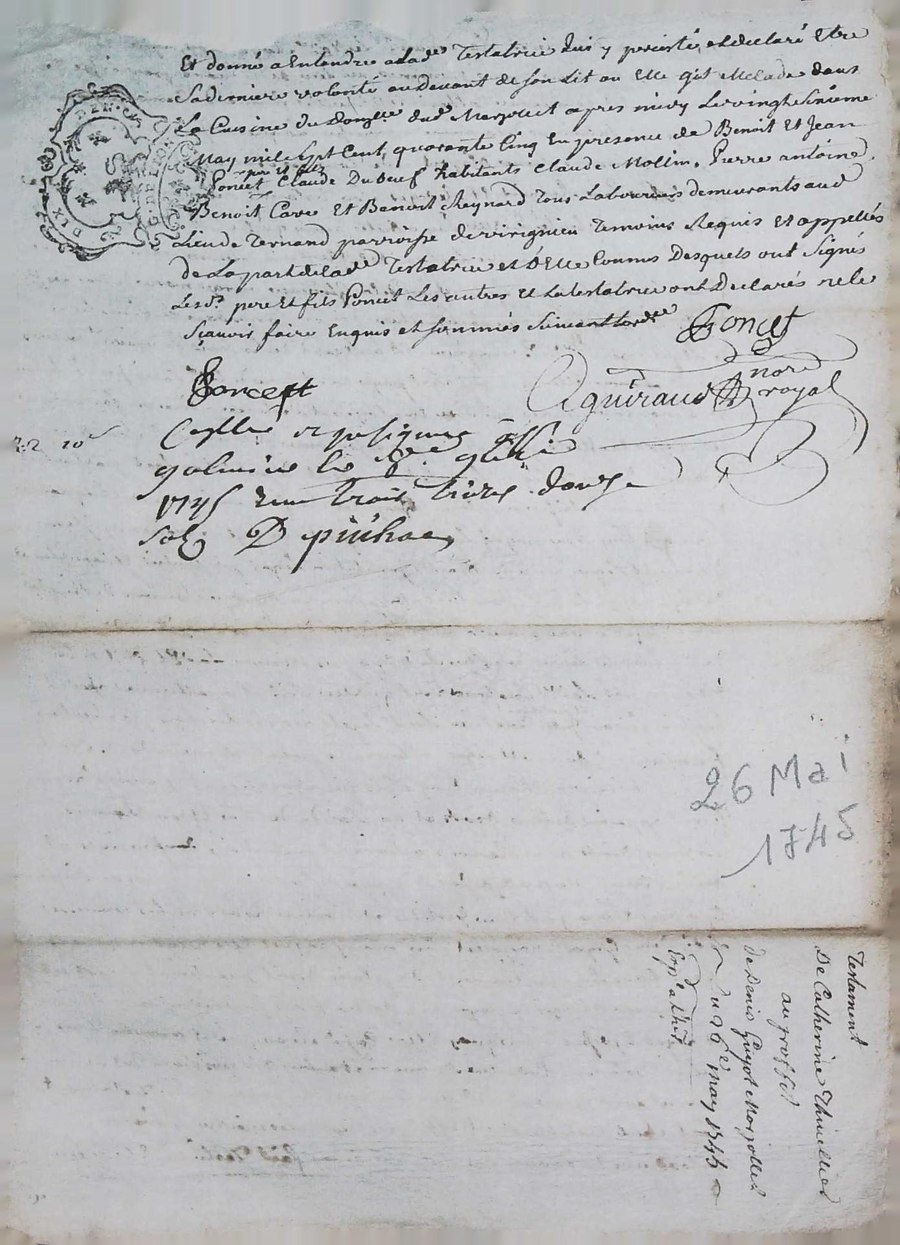 Et donné a Entendre a lade Testatrice qui y persisté, et declaré Etre
Sa derniere volonté au devant de Son Lit ou Elle git Malade dans
La Cuisine du domlle dud Marjollet apres midy Le vingt Sixieme
May mil Sept Cent quarante Cinq En presence de Benoit Et Jean
pere et fils
Poncet Claude Duboeuf habitants Claude Mollin, Pierre antoine,
Benoit Carre Et Benoit Reynard Tous Laboureurs demeurants aud
Lieu de Ternand parroisse de virignieu Temoins Requis Et appellés
de La part de lade Testatrice et d'Elle Connus Desquels ont Signés
Lesds pere Et fils Poncet Les autres Et La testatrice ont Declarés ne le
Sçavoir faire Enquis et Sommés Suivant lordce
Poncet
Poncet
Aguiraud nore royal
10s
Con̄llé
1745 Reçu trois livres douze
solz D
DIX DEN.
G. DE LYON
26 Mai
1745
Testament
De Catherine Thuellier
au proffit
de Denis Guyot Marjollet
du 26e may 1745